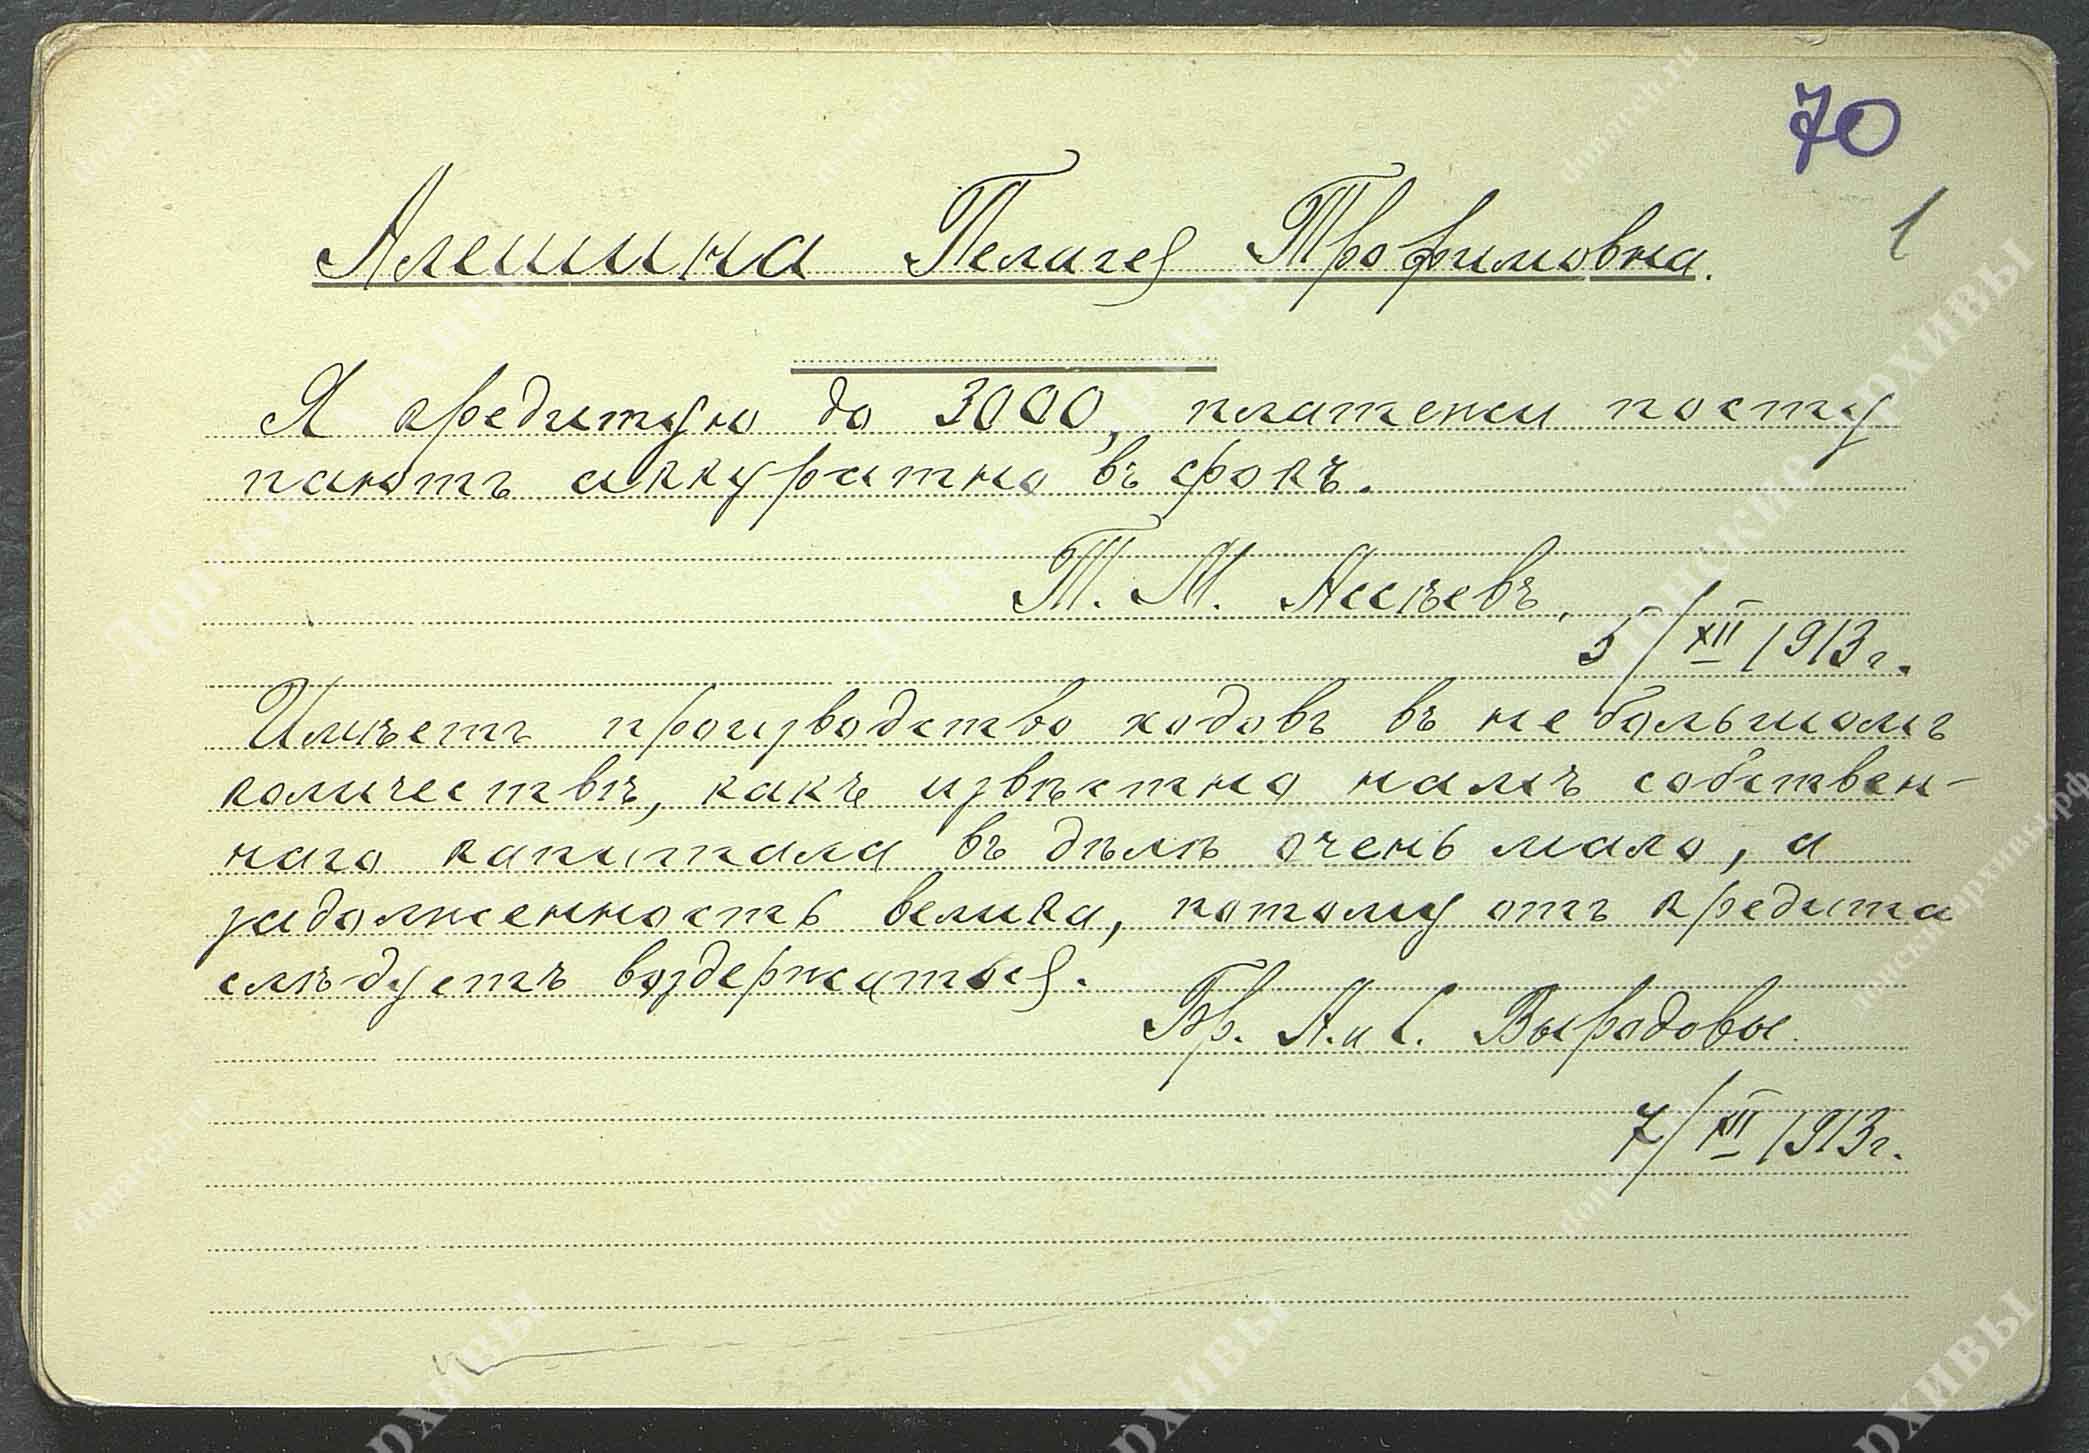 70
1
Алешина Пелагея Трофимовна.
Я кредитую до 3000, платежи посту
пають аккуратно въ срокъ.
Т. М.
5/XII 1913 г.
Имѣетъ производство ходовъ въ небольшомъ
количествѣ, какъ извѣстно намъ собствен-
наго капитала въ дѣлѣ очень мало, а
задолженность велика, потому отъ кредита
слѣдуетъ воздержаться.
Бр. А. и С. Выродовы.
7/XII 1913 г.